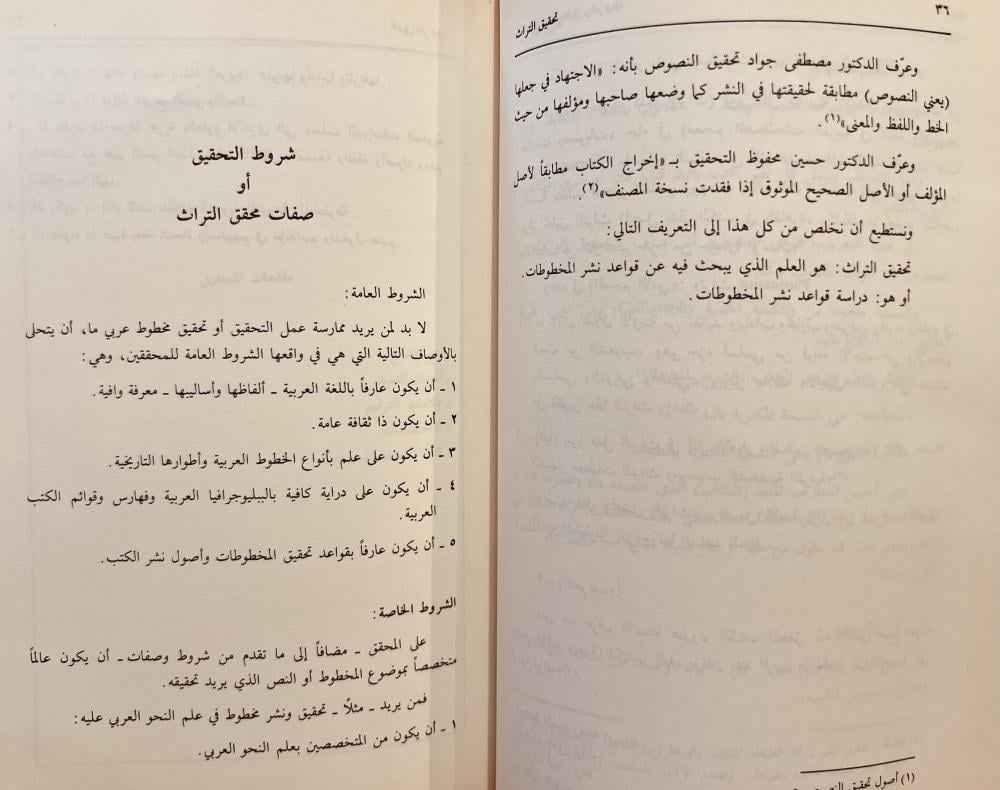 ٣٦
تحقيق التراث
وعرّف الدكتور مصطفى جواد تحقيق النصوص بأنه: «الاجتهاد في جعلها
(يعني النصوص) مطابقة لحقيقتها في النشر كما وضعها صاحبها ومؤلفها من حيث
الخط واللفظ والمعنى»(١).
وعرّف الدكتور حسين محفوظ التحقيق بـ «إخراج الكتاب مطابقاً لأصل
المؤلف أو الأصل الصحيح الموثوق إذا فقدت نسخة المصنف»(٢).
ونستطيع أن نخلص من كل هذا إلى التعريف التالي:
تحقيق التراث: هو العلم الذي يبحث فيه عن قواعد نشر المخطوطات.
أو هو: دراسة قواعد نشر المخطوطات.
(١) أصول تحقيق
شروط التحقيق
أو
صفات محقق التراث
الشروط العامة:
لا بد لمن يريد ممارسة عمل التحقيق أو تحقيق مخطوط عربي ما، أن يتحلى
بالأوصاف التالية التي هي في واقعها الشروط العامة للمحققين، وهي:
١ ـ أن يكون عارفاً باللغة العربية ـ ألفاظها وأساليبها ـ معرفة وافية.
٢ ـ أن يكون ذا ثقافة عامة.
٣ ـ أن يكون على علم بأنواع الخطوط العربية وأطوارها التاريخية.
٤ ـ أن يكون على دراية كافية بالببليوجرافيا العربية وفهارس وقوائم الكتب
العربية.
٥ ـ أن يكون عارفاً بقواعد تحقيق المخطوطات وأصول نشر الكتب.
الشروط الخاصة:
على المحقق ـ مضافاً إلى ما تقدم من شروط وصفات ـ أن يكون عالماً
متخصصاً بموضوع المخطوط أو النص الذي يريد تحقيقه.
فمن يريد ـ مثلاً ـ تحقيق ونشر مخطوط في علم النحو العربي عليه:
١ ـ أن يكون من المتخصصين بعلم النحو العربي.